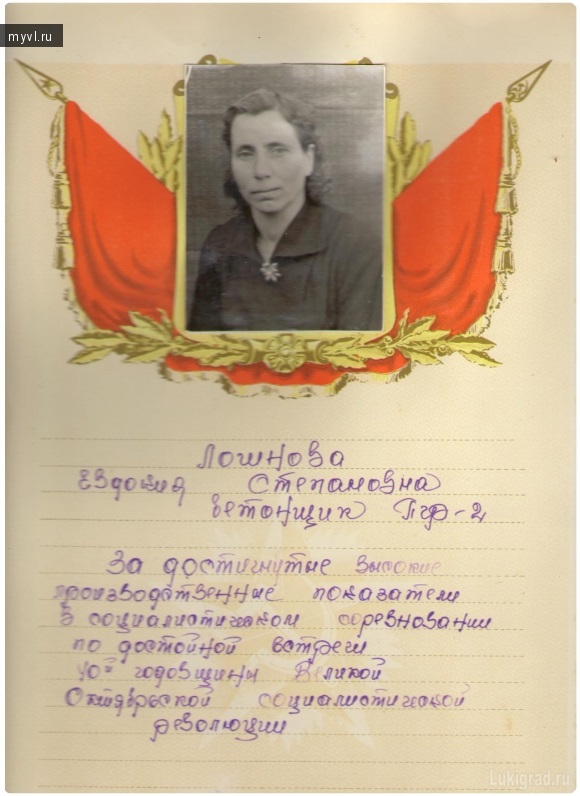 myvl.ru
Лошнова
Евдокия Степановна
бетонщик Пур-2
За достигнутые высокие
производственные показатели
в социалистическом соревновании
по достойной встречи
40ой годовщины Великой
Октябрьской социалистической
революции
Lukigrad.ru